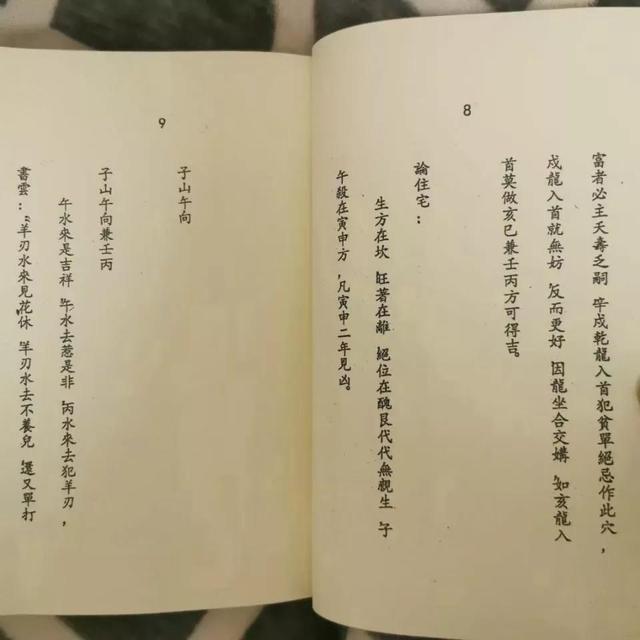 8
富者必主夭壽乏嗣，辛戌乾龍入首犯貧單絕忌作此穴，
戌龍入首就無妨，反而更好，因龍坐合交媾，如亥龍入
首莫做亥巳兼壬丙方可得吉。
論住宅：
生方在坎，旺著在離，絕位在醜艮代代無親生，子
午殺在寅申方，凡寅申二年見凶。
9
子山午向
子山午向兼壬丙
午水來是吉祥，午水去惹是非，丙水來去犯羊刃，
書雲：“羊刃水來見花休，羊刃水去不養兒，還又單打